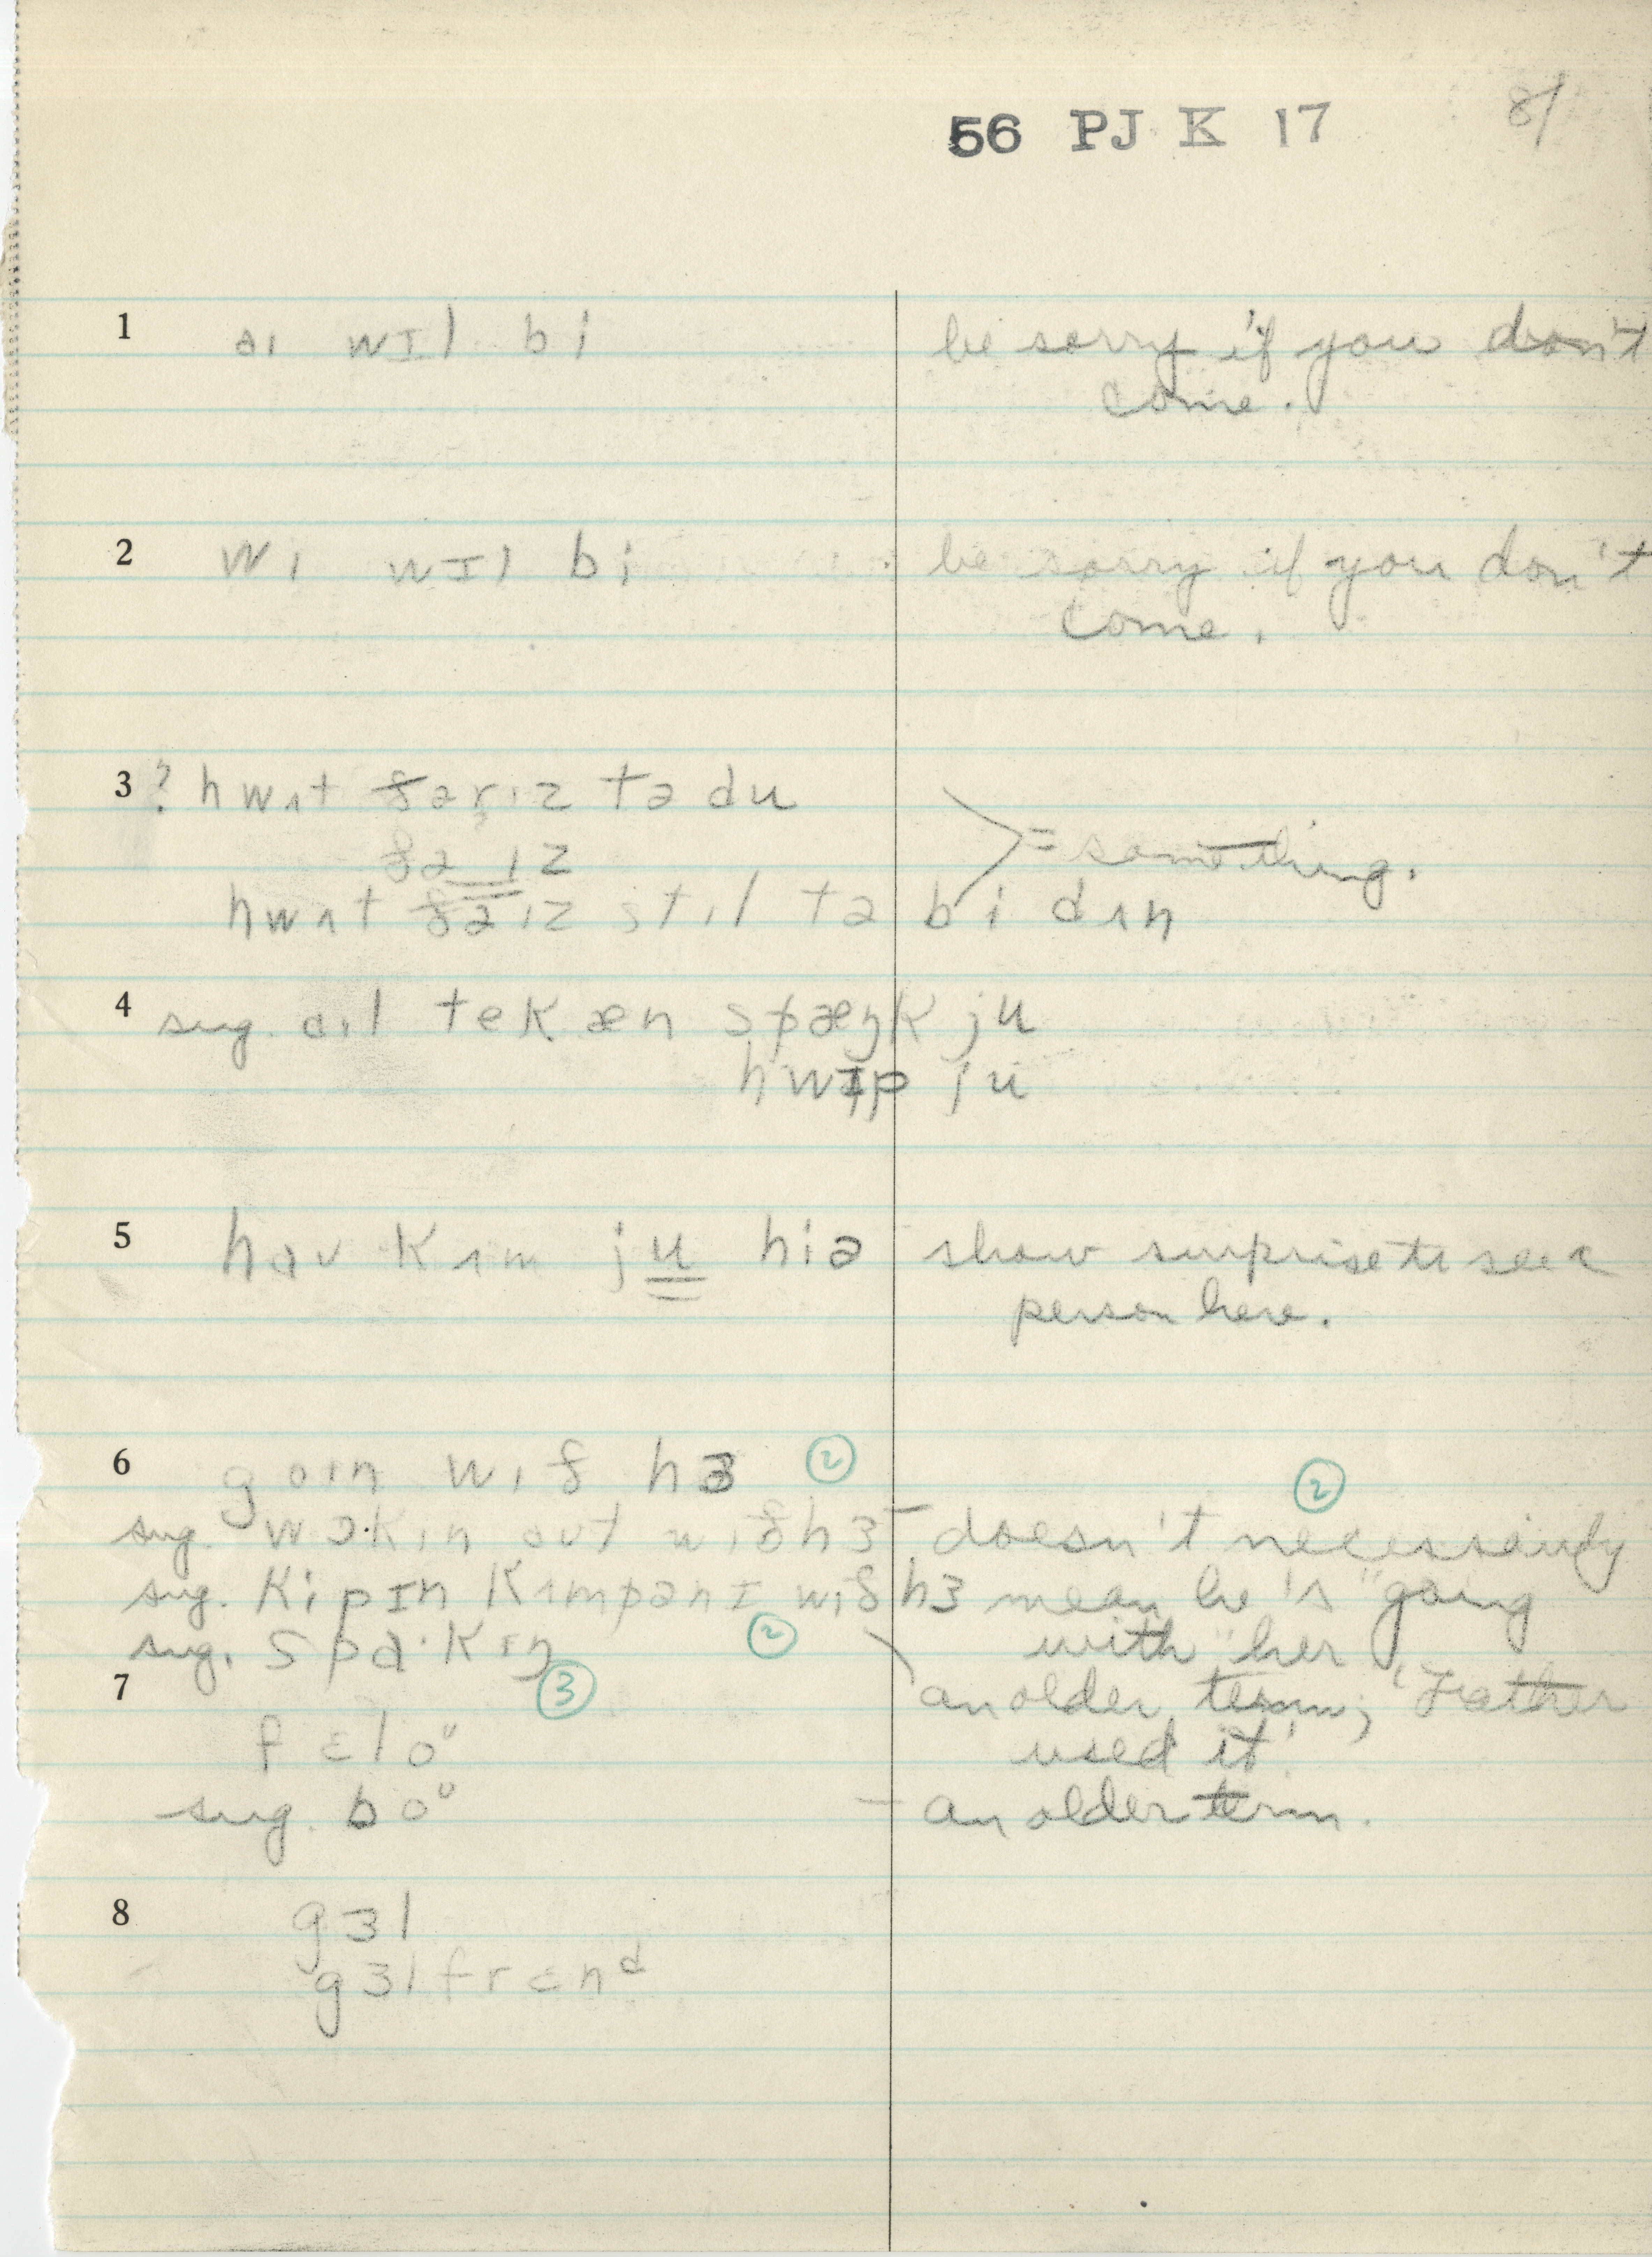 56 PJ K 17 81
1 aɪ wɪl bi be sorry if you don't
come.
2 wi wɪl bi be sorry if you don't
come.
3 ? hwʌt ðərɪz tə du
ðə ɪz = something.
hwʌt ðəɪz stɪl tə bi dʌn
4 sug. aɪl tek æn spæŋk ju
hwɪp ju
5 haʊ kʌm ju hiə show surprise to see a
person here.
6 goɪn wɪð hɜ ②
②
sug. wɔkɪn aʊt wɪð hɜ – doesn't necessarily
sug. kipɪn kʌmpənɪ wɪð hɜ mean he's "going
sug. spɑ·kɪŋ ② with" her
7 ③ an older term; 'Father
fɛloᶷ used it'
sug. boᶷ – an older term.
8 gɜl
gɜlfrɛnᵈ